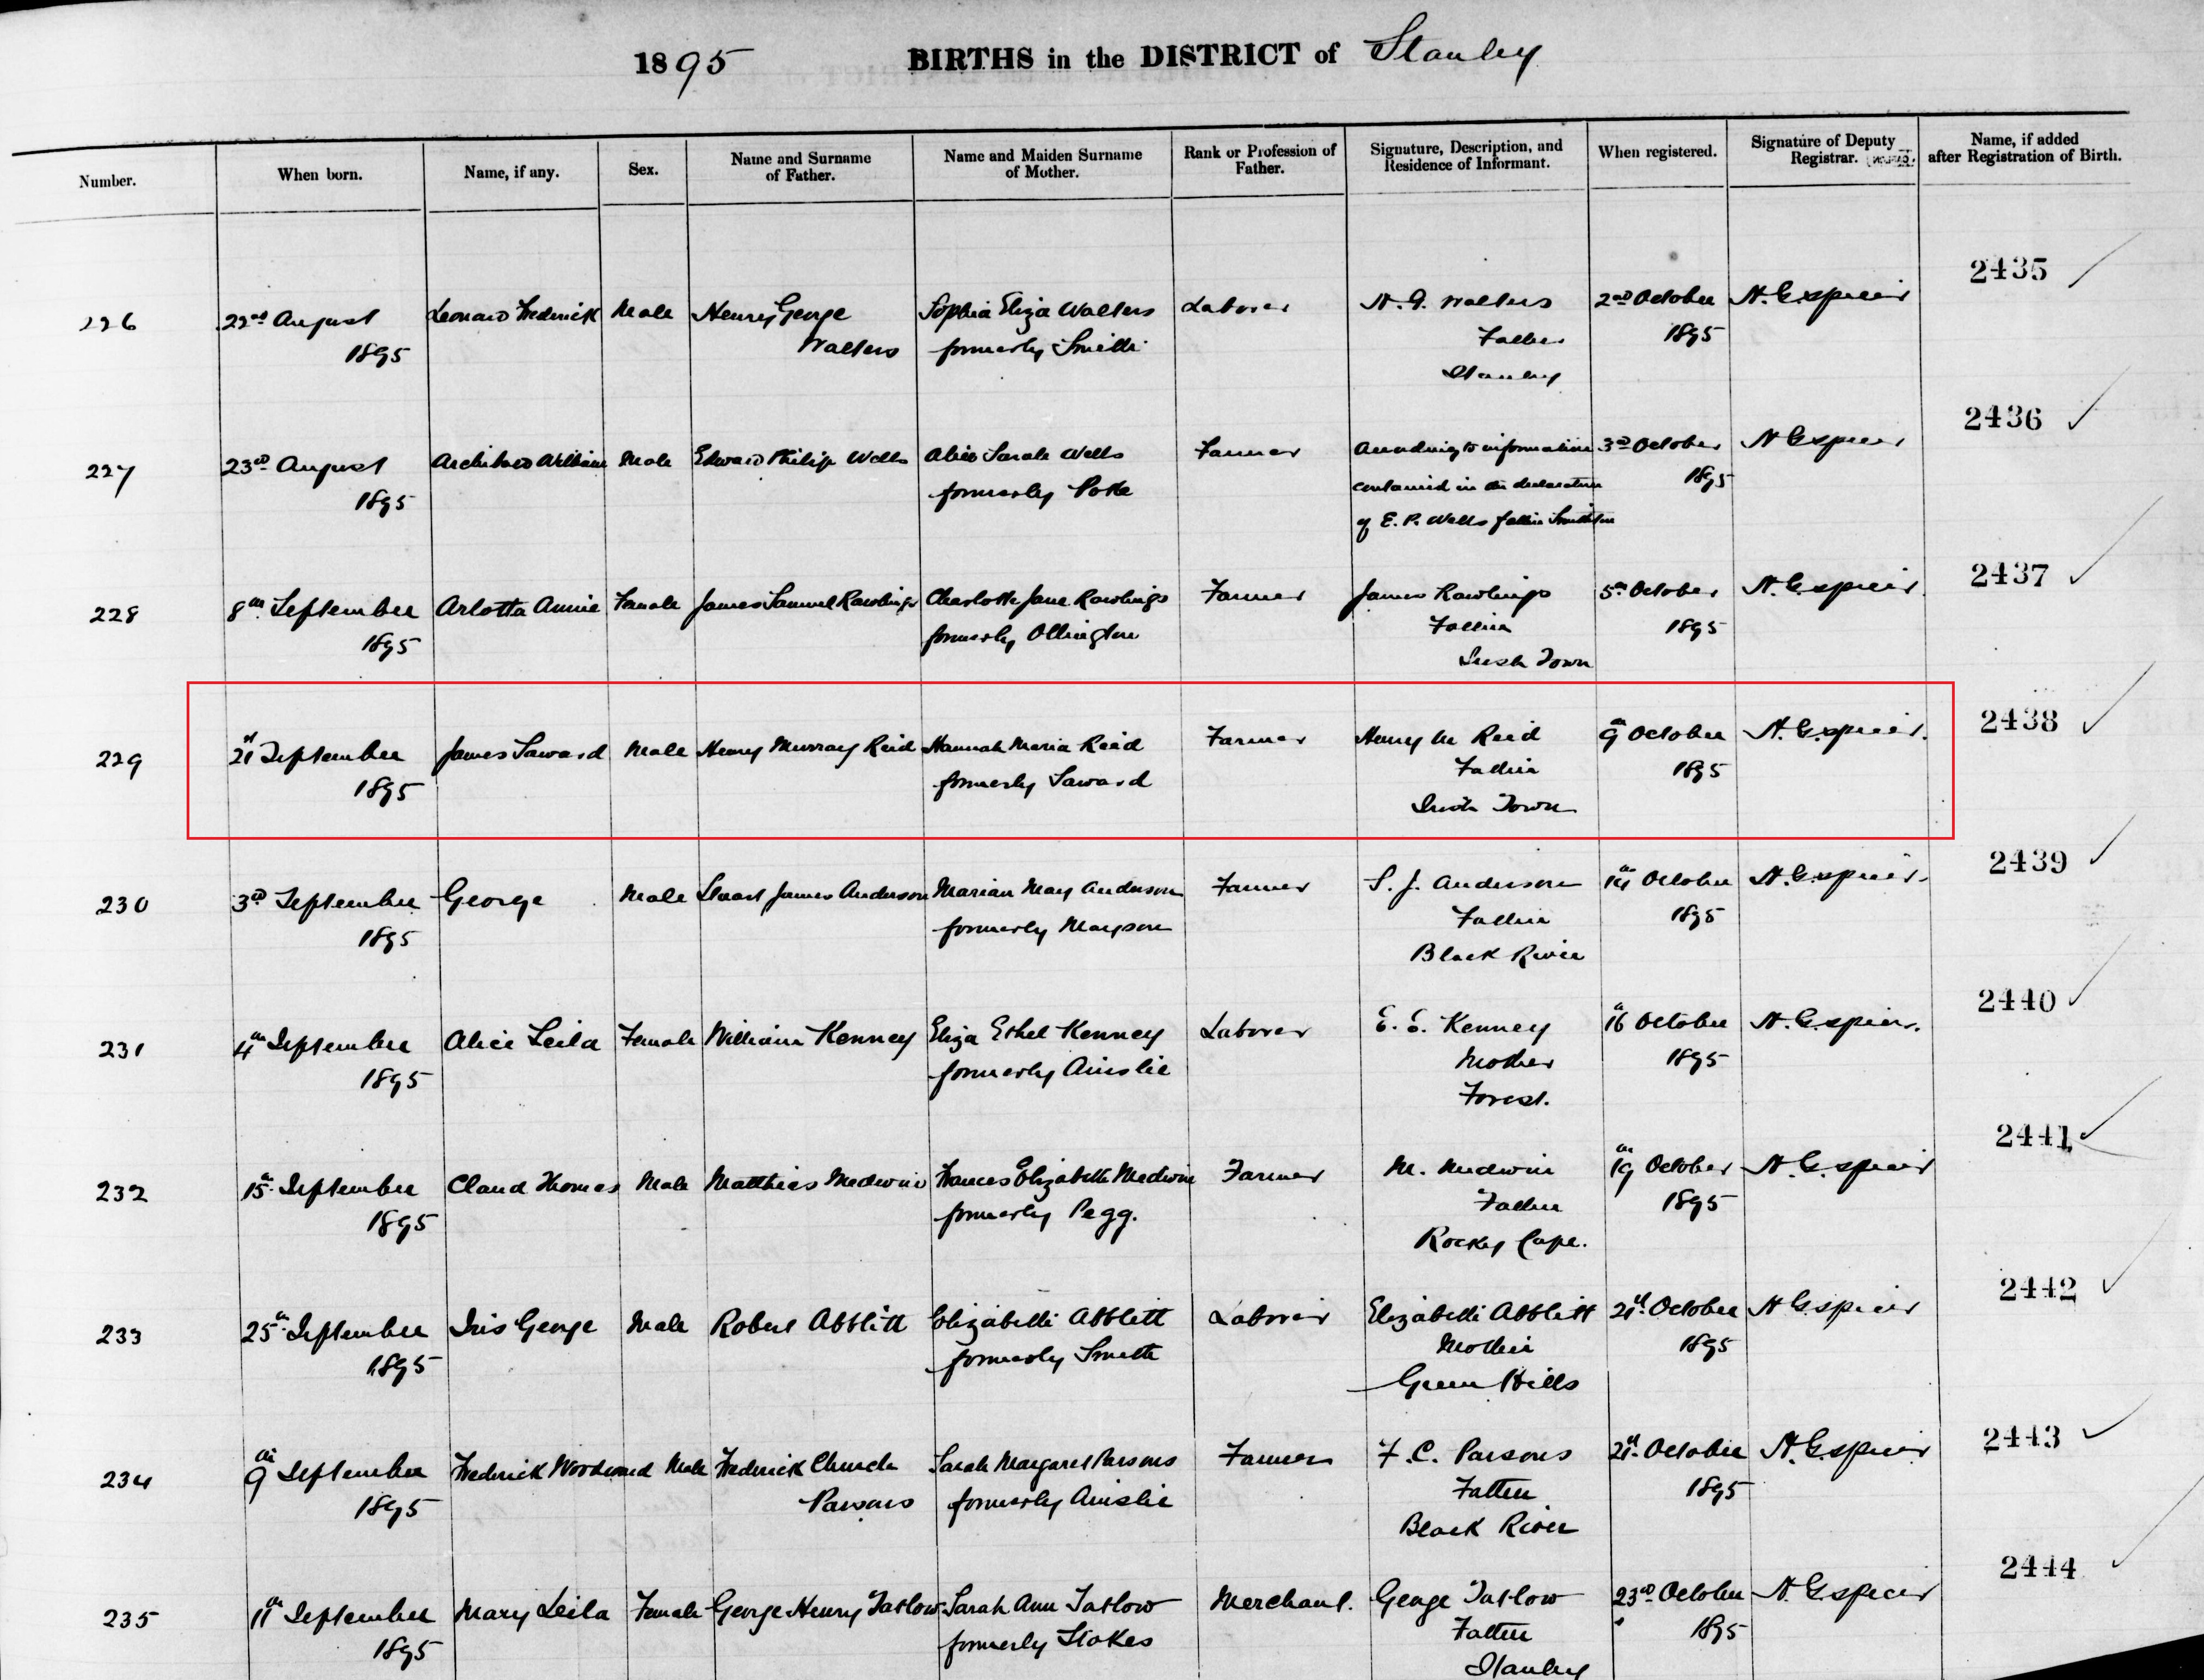 1895 BIRTHS in the DISTRICT of Stanley
Number. When born. Name, if any. Sex. Name and Surname of Father. Name and Maiden Surname of Mother. Rank or Profession of Father. Signature, Description, and Residence of Informant. When registered. Signature of Deputy Registrar. Name, if added after Registration of Birth.
2435
226 22nd August Leonard Frederick Male Henry George Sophia Eliza Walters Laborer H. G. Walters 2nd October
1895 Walters formerly Smith Father 1895
Stanley
2436
227 23rd August Archibald William Male Edward Philip Wells Alice Sarah Wells Farmer According to information 3rd October
1895 formerly Poke contained in the declaration 1895
of E. P. Wells father Smithton
2437
228 8th September Arlotta Annie Female James Samuel Rawlings Charlotte Jane Rawlings Farmer James Rawlings 5th October
1895 formerly Ollington Father 1895
Irish Town
2438
229 21st September James Saward Male Henry Murray Reid Hannah Maria Reid Farmer Henry M Reid 9th October
1895 formerly Saward Father 1895
Irish Town
2439
230 3rd September George Male Stuart James Anderson Marian May Anderson Farmer S. J. Anderson 14th October
1895 formerly Mayson Father 1895
Black River
2440
231 4th September Alice Leila Female William Kenney Eliza Ethel Kenney Laborer E. E. Kenney 16th October
1895 formerly Ainslie Mother 1895
Forest.
2441
232 15th September Claud Thomas Male Matthias Medwin Frances Elizabeth Medwin Farmer M. Medwin 19th October
1895 formerly Pegg. Father 1895
Rocky Cape.
2442
233 25th September Iris George Male Robert Abblitt Elizabeth Abblett Laborer Elizabeth Abblitt 21st October
1895 formerly Smith Mother 1895
Green Hills
2443
234 9th September Frederick Woodward Male Frederick Church Sarah Margaret Parsons Farmer F. C. Parsons 21st October
1895 Parsons formerly Ainslie Father 1895
Black River
2444
235 11th September Mary Leila Female George Henry Tatlow Sarah Ann Tatlow Merchant. George Tatlow 23rd October
1895 formerly Stokes Father 1895
Stanley